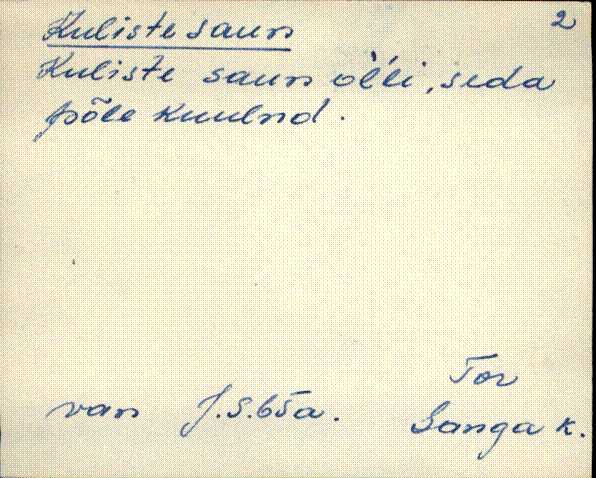 2
Kuliste saun
Kuliste saun oĺli, seda
põle kuulnd.
Tor
van J. S. 65a.
Sanga k.